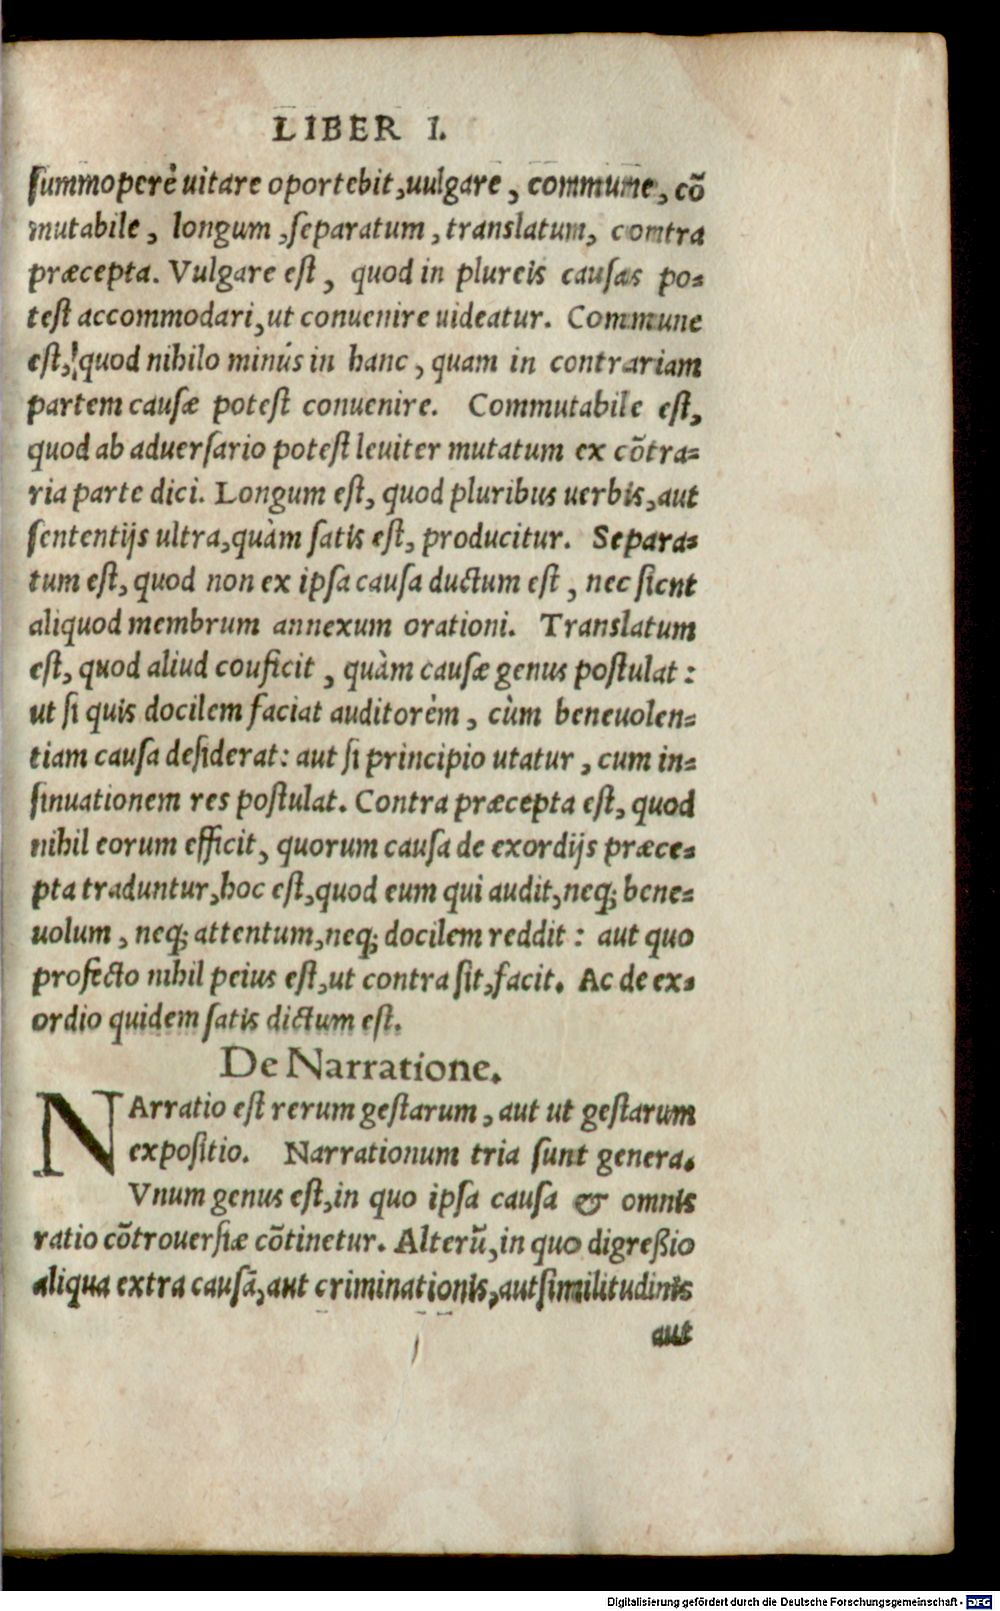 LIBER I.
summoperè uitare oportebit, uulgare, commune, cõ
mutabile, longum, separatum, translatum, contra
præcepta. Vulgare est, quod in plureis causas po-
test accommodari, ut conuenire uideatur. Commune
est, quod nihilo minús in hanc, quam in contrariam
partem causæ potest conuenire. Commutabile est,
quod ab aduersario potest leuiter mutatum ex cõtra-
ria parte dici. Longum est, quod pluribus uerbis, aut
sententijs ultra, quàm satis est, producitur. Separa-
tum est, quod non ex ipsa causa ductum est, nec sicut
aliquod membrum annexum orationi. Translatum
est, quod aliud couficit, quàm causæ genus postulat:
ut si quis docilem faciat auditorèm, cùm beneuolen-
tiam causa desiderat: aut si principio utatur, cum in-
sinuationem res postulat. Contra præcepta est, quod
nihil eorum efficit, quorum causa de exordijs præce-
pta traduntur, hoc est, quod eum qui audit, neq; bene-
uolum, neq; attentum, neq; docilem reddit: aut quo
profecto nihil peius est, ut contra sit, facit. Ac de ex-
ordio quidem satis dictum est.
De Narratione.
NArratio est rerum gestarum, aut ut gestarum
expositio. Narrationum tria sunt genera.
Vnum genus est, in quo ipsa causa & omnis
ratio cõtrouersiæ cõtinetur. Alterũ, in quo digreßio
aliqua extra causã, aut criminationis, aut similitudinis
aut
Digitalisierung gefördert durch die Deutsche Forschungsgemeinschaft - DFG